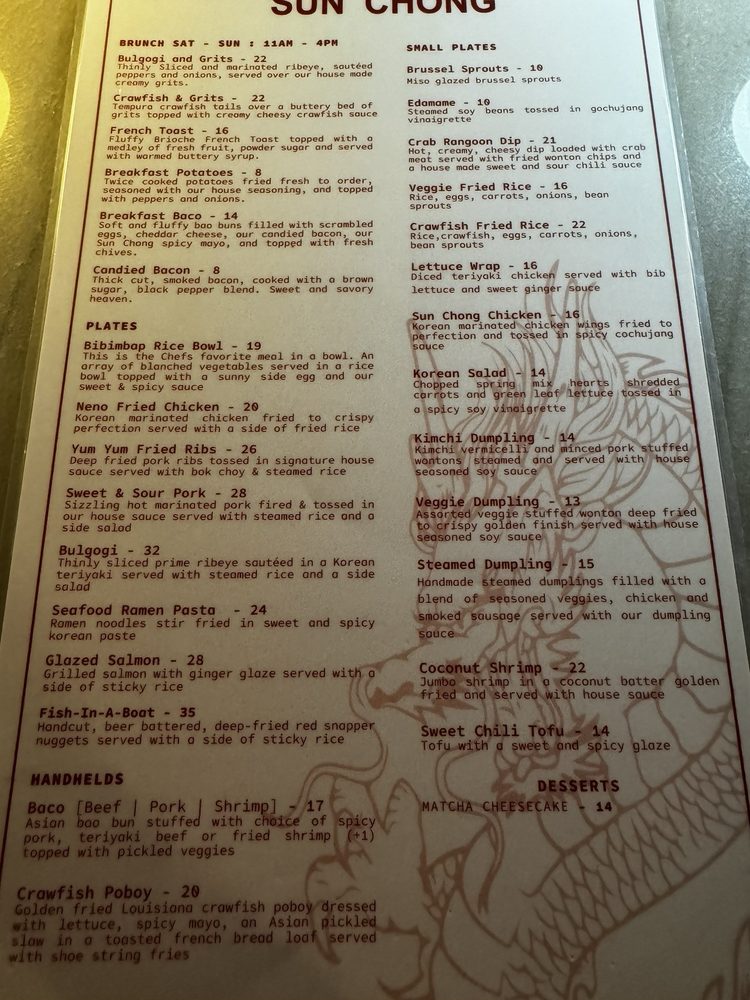 SUN CHONG
BRUNCH SAT - SUN : 11AM - 4PM
Bulgogi and Grits - 22
Thinly Sliced and marinated ribeye, sautéed
peppers and onions, served over our house made
creamy grits.
Crawfish & Grits - 22
Tempura crawfish tails over a buttery bed of
grits topped with creamy cheesy crawfish sauce
French Toast - 16
Fluffy Brioche French Toast topped with a
medley of fresh fruit, powder sugar and served
with warmed buttery syrup.
Breakfast Potatoes - 8
Twice cooked potatoes fried fresh to order,
seasoned with our house seasoning, and topped
with peppers and onions.
Breakfast Baco - 14
Soft and fluffy bao buns filled with scrambled
eggs, cheddar cheese, our candied bacon, our
Sun Chong spicy mayo, and topped with fresh
chives.
Candied Bacon - 8
Thick cut, smoked bacon, cooked with a brown
sugar, black pepper blend. Sweet and savory
heaven.
PLATES
Bibimbap Rice Bowl - 19
This is the Chefs favorite meal in a bowl. An
array of blanched vegetables served in a rice
bowl topped with a sunny side egg and our
sweet & spicy sauce
Neno Fried Chicken - 20
Korean marinated chicken fried to crispy
perfection served with a side of fried rice
Yum Yum Fried Ribs - 26
Deep fried pork ribs tossed in signature house
sauce served with bok choy & steamed rice
Sweet & Sour Pork - 28
Sizzling hot marinated pork fired & tossed in
our house sauce served with steamed rice and a
side salad
Bulgogi - 32
Thinly sliced prime ribeye sautéed in a Korean
teriyaki served with steamed rice and a side
salad
Seafood Ramen Pasta - 24
Ramen noodles stir fried in sweet and spicy
korean paste
Glazed Salmon - 28
Grilled salmon with ginger glaze served with a
side of sticky rice
Fish-In-A-Boat - 35
Handcut, beer battered, deep-fried red snapper
nuggets served with a side of sticky rice
HANDHELDS
Baco [Beef | Pork | Shrimp] - 17
Asian bao bun stuffed with choice of spicy
pork, teriyaki beef or fried shrimp (+1)
topped with pickled veggies
Crawfish Poboy - 20
Golden fried Louisiana crawfish poboy dressed
with lettuce, spicy mayo, an Asian pickled
slaw in a toasted french bread loaf served
with shoe string fries
SMALL PLATES
Brussel Sprouts - 10
Miso glazed brussel sprouts
Edamame - 10
Steamed soy beans tossed in gochujang
vinaigrette
Crab Rangoon Dip - 21
Hot, creamy, cheesy dip loaded with crab
meat served with fried wonton chips and
a house made sweet and sour chili sauce
Veggie Fried Rice - 16
Rice, eggs, carrots, onions, bean
sprouts
Crawfish Fried Rice - 22
Rice,crawfish, eggs, carrots, onions,
bean sprouts
Lettuce Wrap - 16
Diced teriyaki chicken served with bib
lettuce and sweet ginger sauce
Sun Chong Chicken - 16
Korean marinated chicken wings fried to
perfection and tossed in spicy cochujang
sauce
Korean Salad - 14
Chopped spring mix hearts shredded
carrots and green leaf lettuce tossed in
a spicy soy vinaigrette
Kimchi Dumpling - 14
Kimchi vermicelli and minced pork stuffed
wontons steamed and served with house
seasoned soy sauce
Veggie Dumpling - 13
Assorted veggie stuffed wonton deep fried
to crispy golden finish served with house
seasoned soy sauce
Steamed Dumpling - 15
Handmade steamed dumplings filled with a
blend of seasoned veggies, chicken and
smoked sausage served with our dumpling
sauce
Coconut Shrimp - 22
Jumbo shrimp in a coconut batter golden
fried and served with house sauce
Sweet Chili Tofu - 14
Tofu with a sweet and spicy glaze
DESSERTS
MATCHA CHEESECAKE - 14